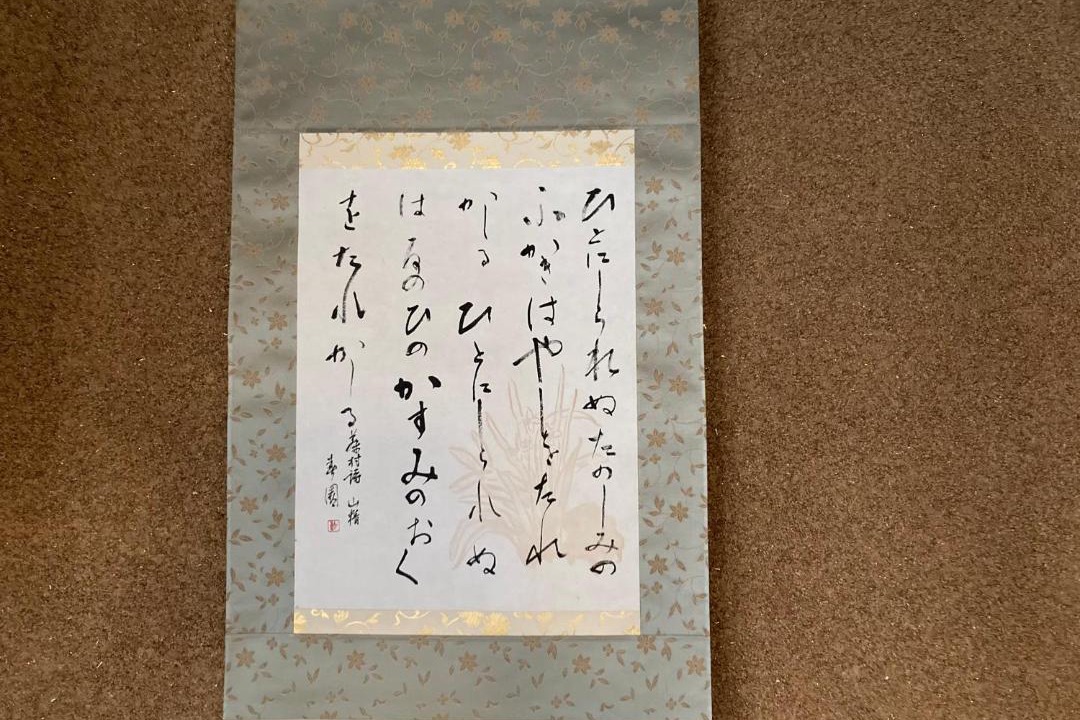 ひとにしられぬたのしみの
ふかきはやしをたれ
かしるひとにしられぬ
はるのひのかすみのおく
をたれかしる 藤村詩 山精